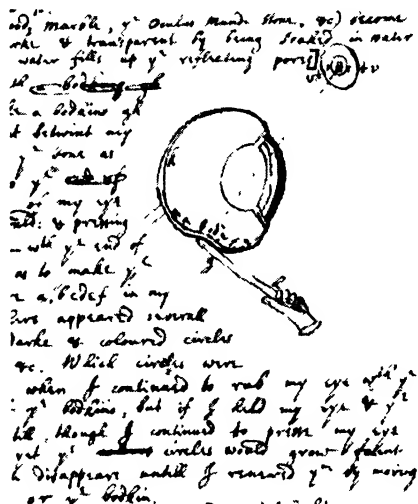 ood, Marble, yᵉ Oculus Mundi Stone, &c) become
arke & transparent by being soaked in water
water fills up yᵉ reflecting pores
th a bodkin gh
ke a bodkine gh
t betwixt my
yᵉ bone as
yᵉ
of my eye
& pressing
wᵗʰ yᵉ end of
as to make yᵉ
a, bcdef in my
ere appeared severall
darke & coloured circles
&c. Which circles were
when I continued to rub my eye wᵗʰ yᵉ
yᵉ bodkine, but if I held my eye & yᵉ
ill, though I continued to presse my eye
yet yᵉ circles would grow faint
& disappeare untill I renewed yᵐ by moving
or yᵉ bodkin.